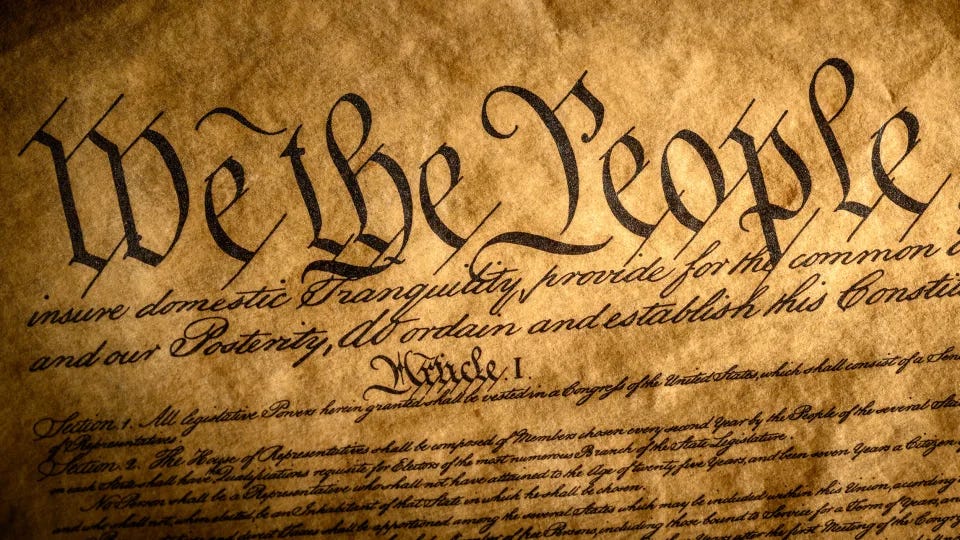 We the People
insure domestic Tranquility, provide for the common
and our Posterity, do ordain and establish this Constit
Article. I.
Section. 1. All legislative Powers herein granted shall be vested in a Congress of the United States, which shall consist of a Sen
of Representatives.
Section. 2. The House of Representatives shall be composed of Members chosen every second Year by the People of the several Stat
in each State shall have the Qualifications requisite for Electors of the most numerous Branch of the State Legislature.
No Person shall be a Representative who shall not have attained to the Age of twenty five Years, and been seven Years a Citizen
and who shall not, when elected, be an Inhabitant of that State in which he shall be chosen.
and direct Taxes shall be apportioned among the several States which may be included within this Union, according
of free Persons, including those bound to Service for a Term of Years,
after the first Meeting of the Congr